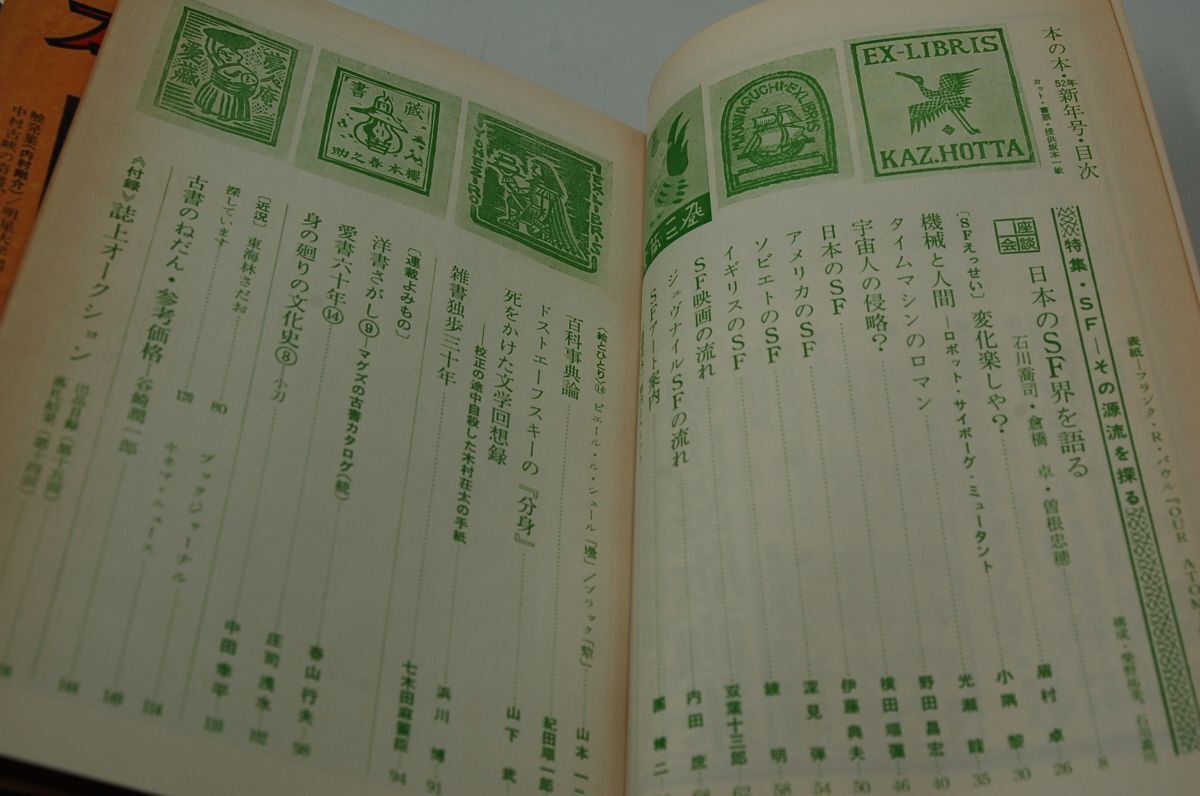 本の本・52年新年号・目次
カット・票・提供坂本一敏
EX-LIBRIS
KAZ.HOTTA
KAWAGUCHI-EXLIBRIS
表紙―フランク・R・パウル『OUR ATOM
特集・SF―その源流を探る
座談会
日本のSF界を語る
石川喬司・倉橋 卓・曽根忠穂
8
〔SFえっせい〕 変化楽しや?
眉村 卓
26
機械と人間―ロボット・サイボーグ・ミュータント
小隅 黎
30
タイムマシンのロマン
光瀬 龍
35
宇宙人の侵略?
野田昌宏
40
日本のSF
横田順彌
46
アメリカのSF
伊藤典夫
50
ソビエトのSF
深見 弾
54
イギリスのSF
鏡 明
58
SF映画の流れ
双葉十三郎
62
ジュヴナイルSFの流れ
内田 庶
68
SFアート案内
夢庵
愛蔵
書蔵
櫻本春之助
〈絵とひとり〉⑭ ピエール・ル・シュール
山本 一
百科事典論
紀田順一郎
ドストエーフスキーの『分身』
山下 武
死をかけた文学回想録
―校正の途中自殺した木村荘太の手紙
浜川 博
91
雑書独歩三十年
七木田麻簑臣
94
〔連載よみもの〕
洋書さがし⑨―マグズの古書カタログ(続)
春山行夫
98
愛書六十年⑭
庄司浅水
身の廻りの文化史⑧ 小刀
中田幸平
〔近況〕 東海林さだお
80
ブックジャーナル
探しています
120
キネマ・ニュース
古書のねだん・参考価格―谷崎潤一郎
《付録》誌上オークション
出品目録(第十五回)
落札結果(第十四回)